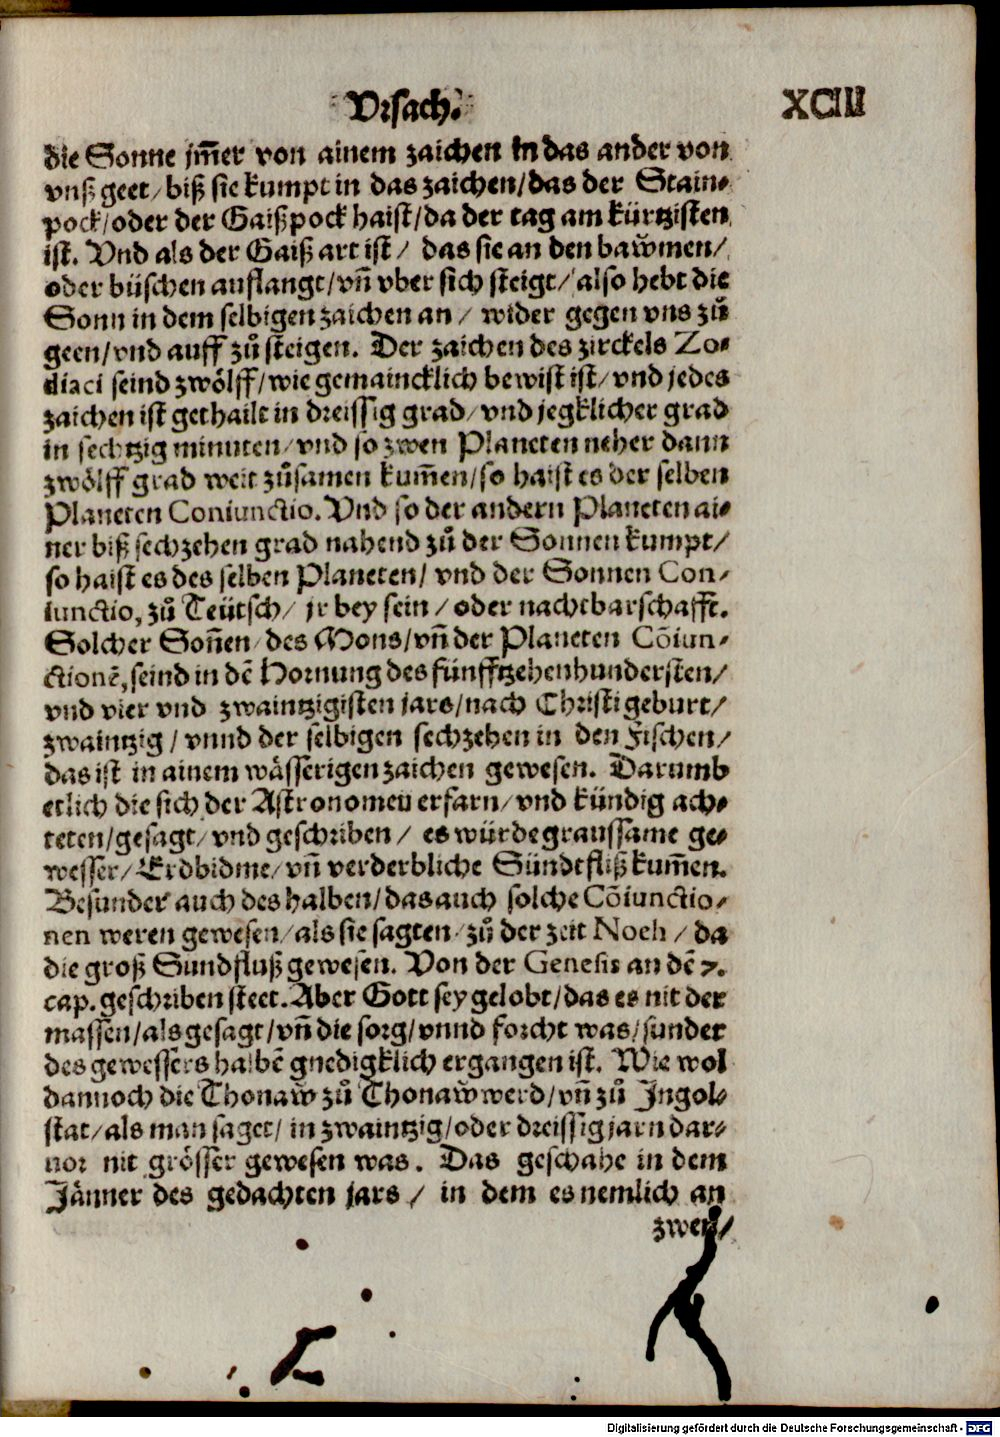 Vrsach. XCIII
die Sonne jm̃er von ainem zaichen in das ander von
vnß geet/ biß sie kumpt in das zaichen/ das der Stain-
pock/ oder der Gaißpock haist/ da der tag am kürtzisten
ist. Vnd als der Gaiß art ist/ das sie an den baw̆men/
oder büschen auflangt/ vñ vber sich steigt/ also hebt die
Sonn in dem selbigen zaichen an/ wider gegen vns zů
geen/ vnd auff zů steigen. Der zaichen des zirckels Zo-
diaci seind zwölff/ wie gemaincklich bewist ist/ vnd jedes
zaichen ist gethailt in dreissig grad/ vnd jegklicher grad
in sechtzig minuten/ vnd so zwen Planeten neher dann
zwölff grad weit zůsamen kum̃en/ so haist es der selben
Planeten Coniunctio. Vnd so der andern Planeten ai-
ner biß sechzehen grad nahend zů der Sonnen kumpt/
so haist es des selben Planeten/ vnd der Sonnen Con-
iunctio, zů Teütsch/ jr bey sein/ oder nachtbarschafft.
Solcher Soñen/ des Mons/ vñ der Planeten Cõiun-
ctionẽ, seind in dẽ Hornung des fünfftzehenhundersten/
vnd vier vnd zwaintzigisten jars/ nach Christi geburt/
zwaintzig/ vnnd der selbigen sechzehen in den Fischen/
das ist in ainem wässerigen zaichen gewesen. Darumb
etlich die sich der Astronomeu erfarn/ vnd kündig ach-
teten/ gesagt/ vnd geschriben/ es würde graussame ge-
wesser/ Erdbidme/ vñ verderbliche Sündtfliß kum̃en.
Besunder auch des halben/ das auch solche Cõiunctio-
nen weren gewesen/ als sie sagten/ zů der zeit Noeh/ da
die groß Sundfluß gewesen. Von der Genesis an dẽ 7.
cap. geschriben steet. Aber Gott sey gelobt/ das es nit der
massen/ als gesagt/ vñ die sorg/ vnnd forcht was/ sunder
des gewessers halbẽ gnedigklich ergangen ist. Wie wol
dannoch die Thonaw̆ zů Thonaw̆werd/ vñ zů Ingol-
stat/ als man saget/ in zwaintzig/ oder dreissig jarn dar-
uor nit grösser gewesen was. Das geschahe in dem
Jänner des gedachten jars/ in dem es nemlich an
zwen/
Digitalisierung gefördert durch die Deutsche Forschungsgemeinschaft - DFG